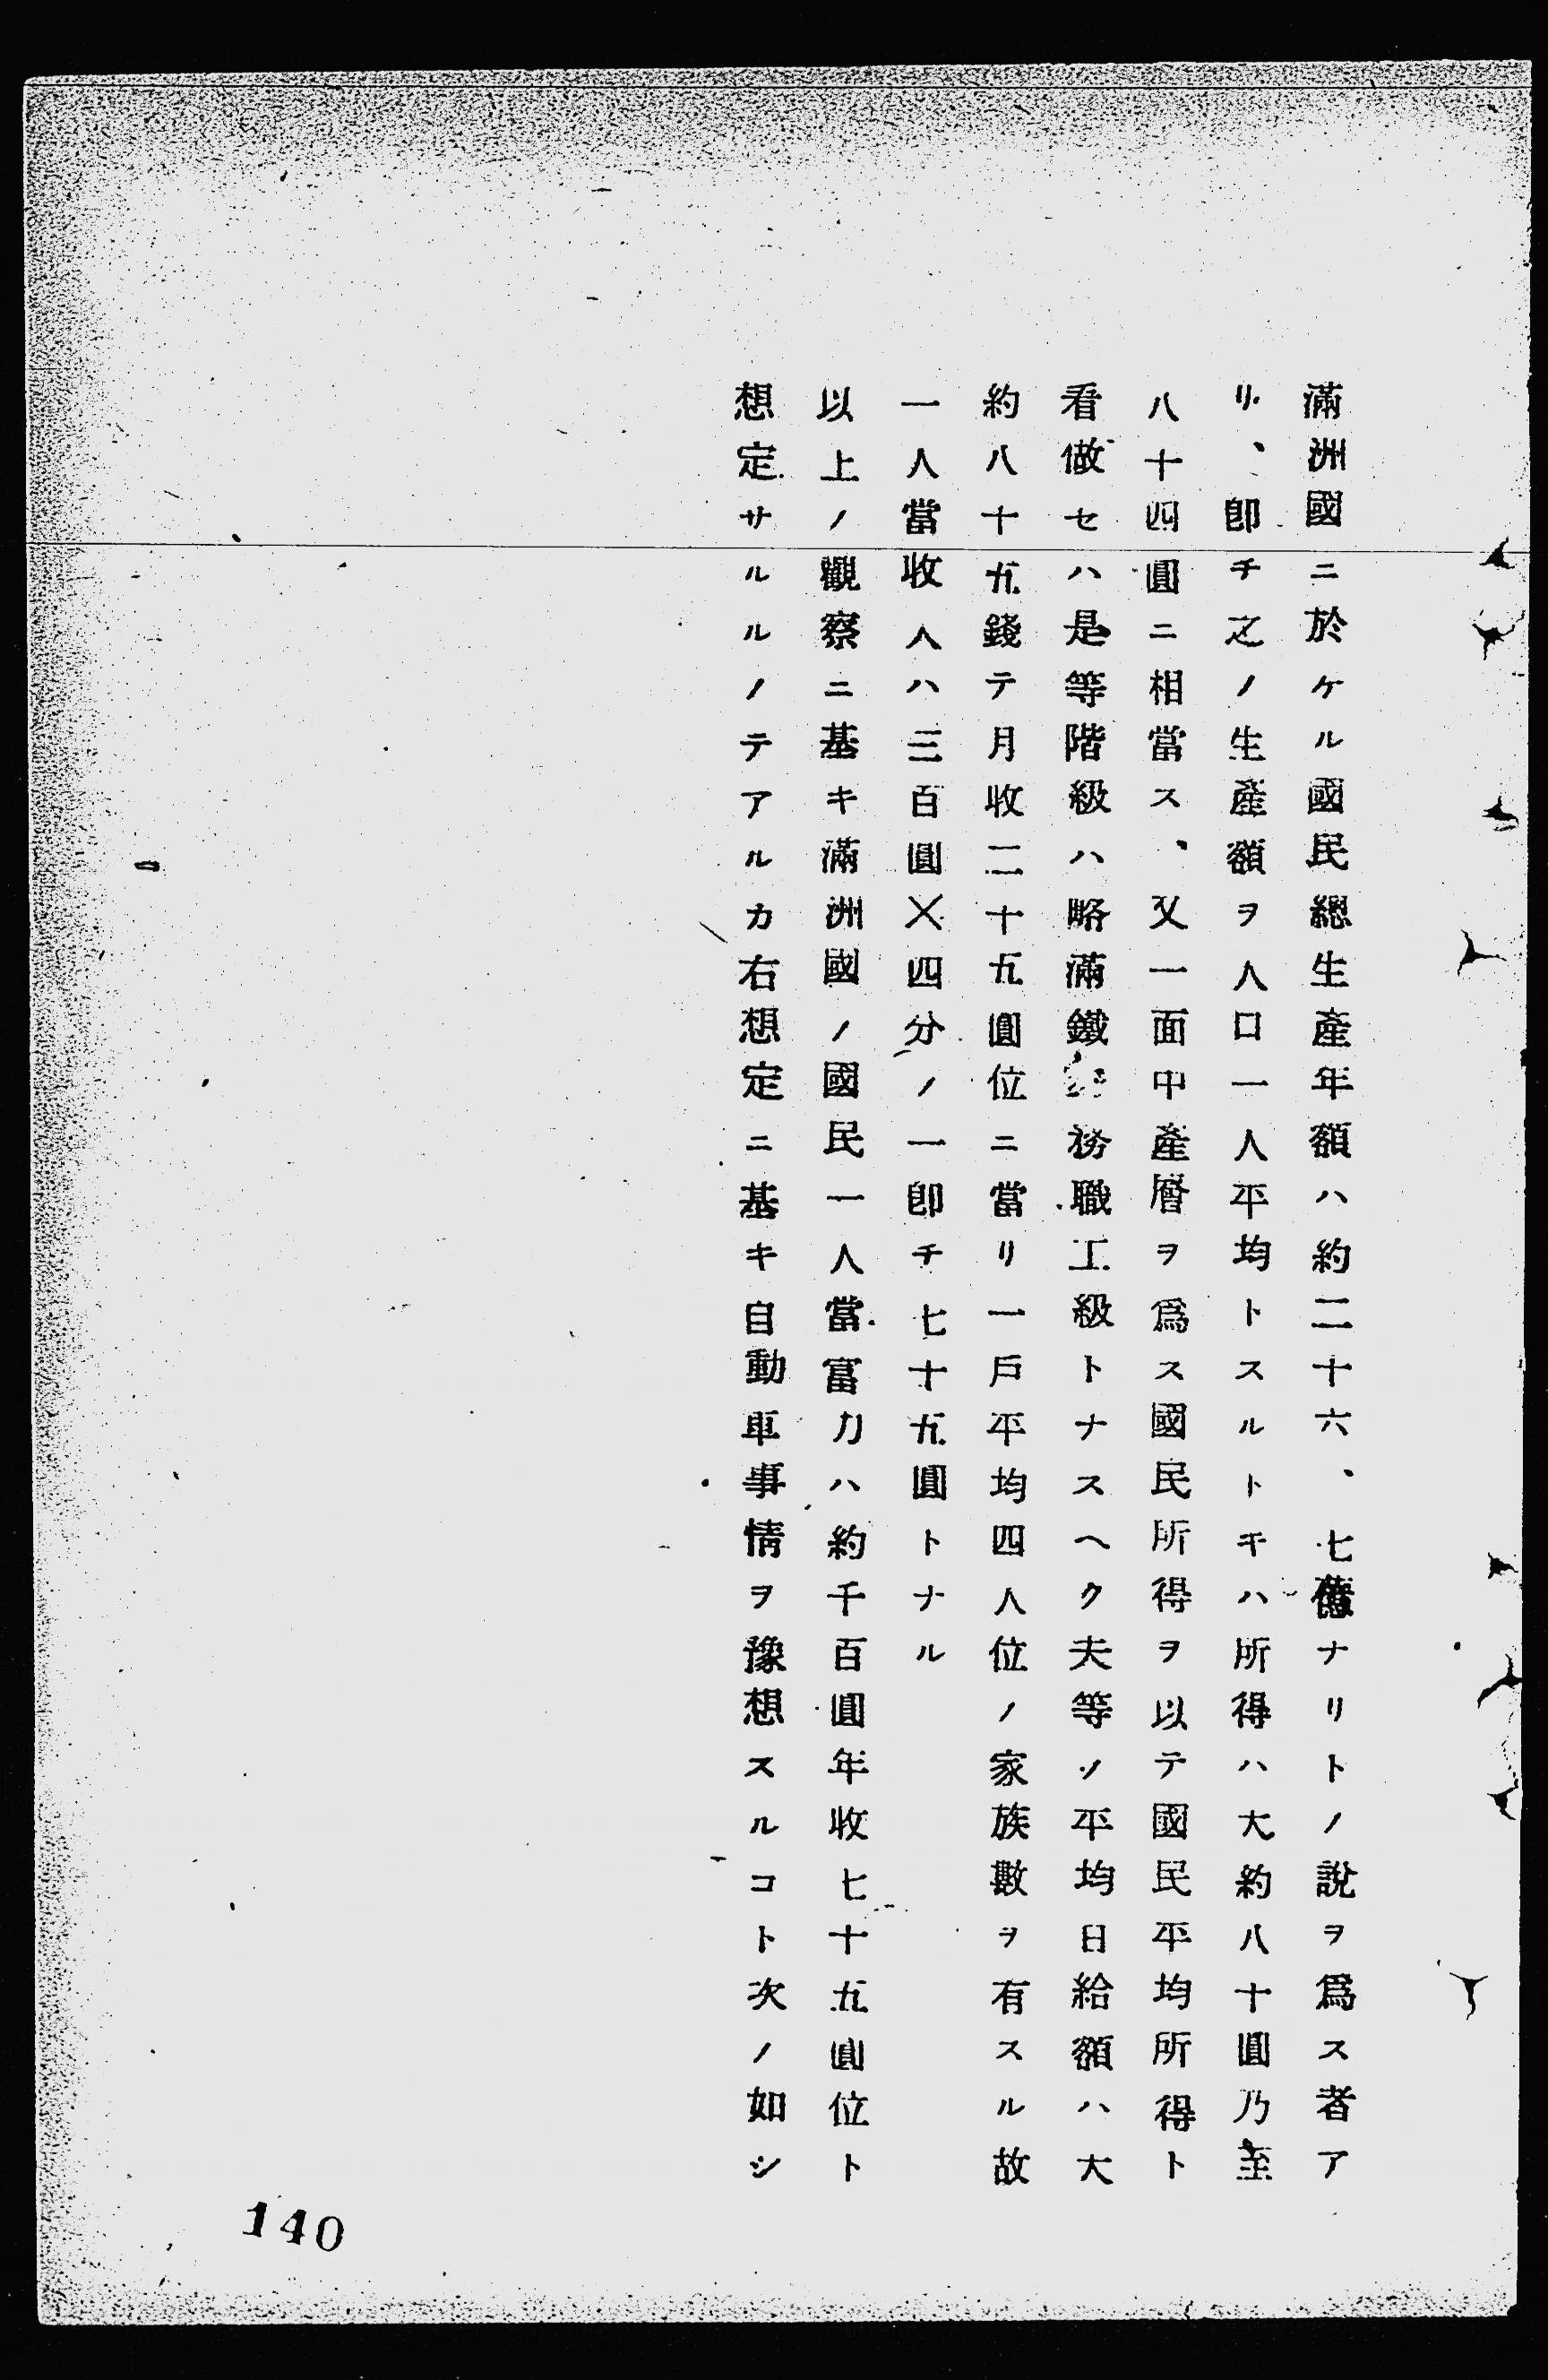 滿洲國ニ於ケル國民總生產年額ハ約二十六、七億ナリトノ說ヲ爲ス者ア
リ、卽チ之ノ生產額ヲ人口一人平均トスルトキハ所得ハ大約八十圓乃至
八十四圓ニ相當ス、又一面中產層ヲ爲ス國民所得ヲ以テ國民平均所得ト
看做セハ是等階級ハ略滿鐵務職工級トナスヘク夫等ノ平均日給額ハ大
約八十五錢テ月收二十五圓位ニ當リ一戶平均四人位ノ家族數ヲ有スル故
一人當收入ハ三百圓×四分ノ一卽チ七十五圓トナル
以上ノ觀察ニ基キ滿洲國ノ國民一人當富力ハ約千百圓年收七十五圓位ト
想定サルルノテアルカ右想定ニ基キ自動車事情ヲ豫想スルコト次ノ如シ
140